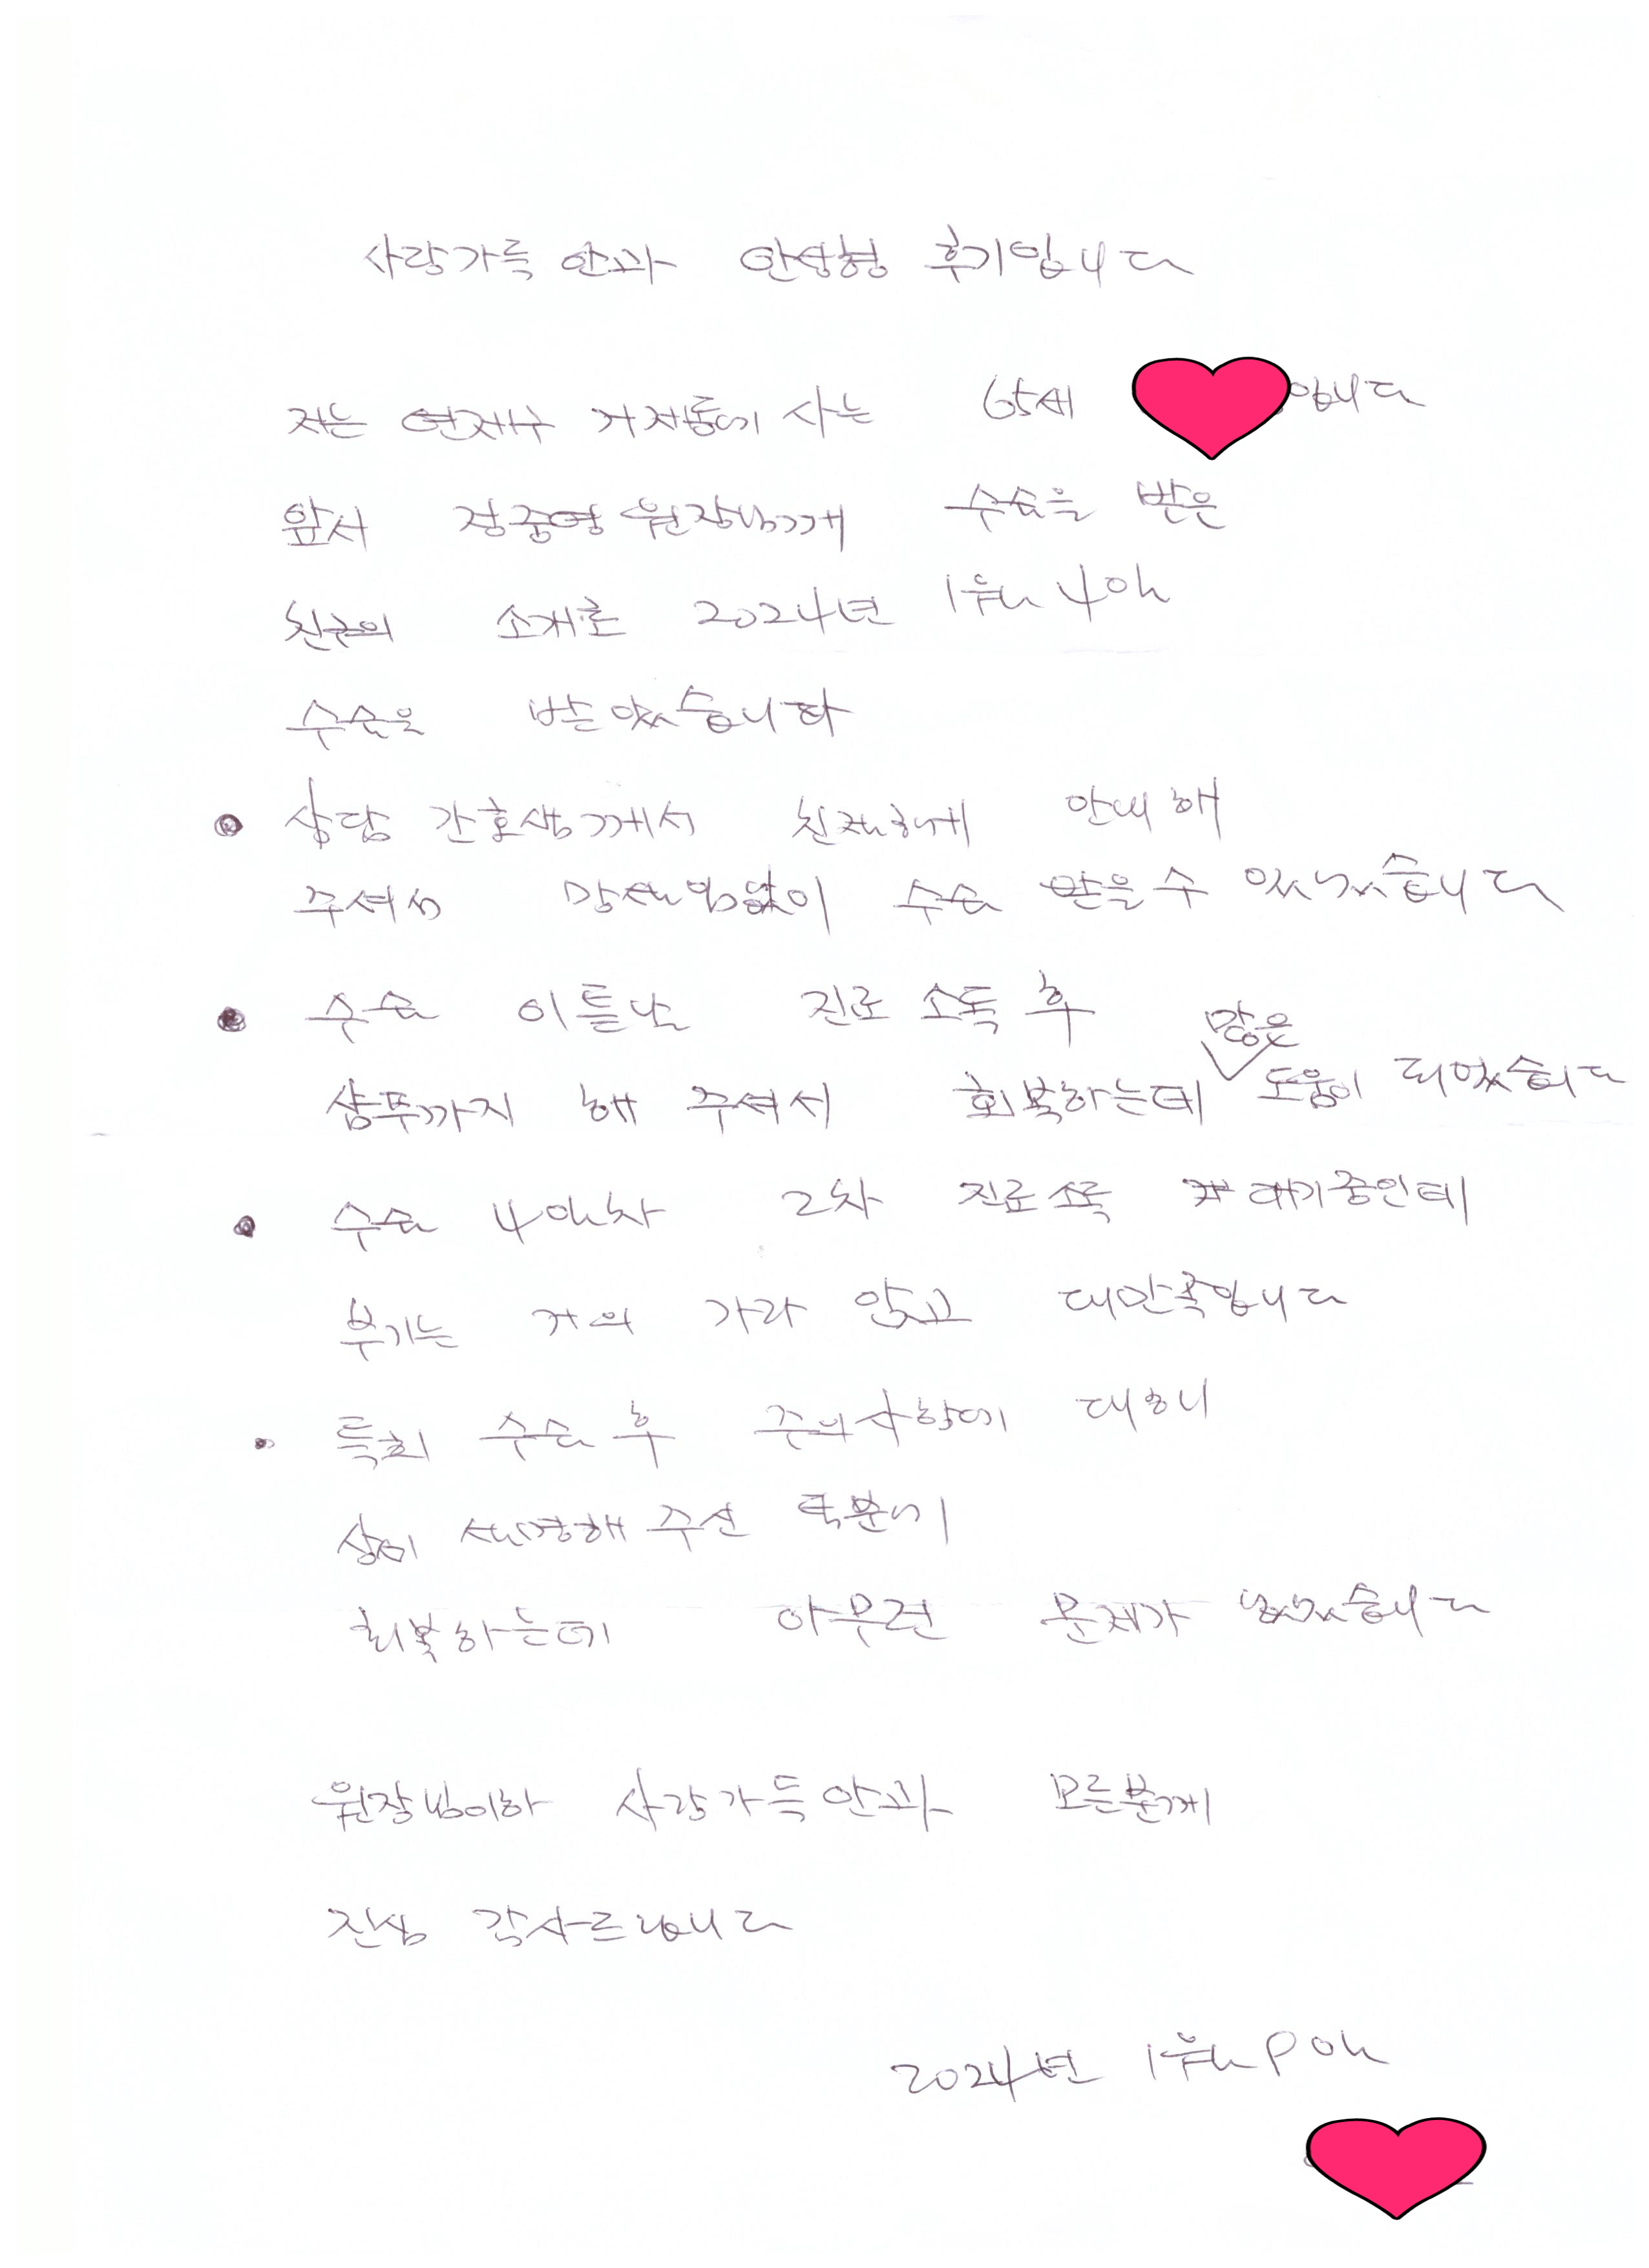 사랑가득 안과 안성형 후기입니다
저는 연제구 거제동에 사는 65세 입니다
앞서 정중영 원장님께 수술을 받은
친구의 소개로 2024년 1월 4일
수술을 받았습니다
상담 간호사님께서 친절하게 안내해
주셔서 망설임없이 수술 받을 수 있었습니다
수술 이틀날 진료 소독 후 많은
샴푸까지 해 주셔서 회복하는데 도움이 되었습니다
수술 4일차 2차 진료 소독 대기중인데
부기는 거의 가라 앉고 대만족입니다
특히 수술 후 주의사항에 대하니
상세히 설명해 주신 덕분에
회복하는데 아무런 문제가 없었습니다
원장님이하 사랑가득안과 모든분께
진심 감사드립니다
2024년 1월 일